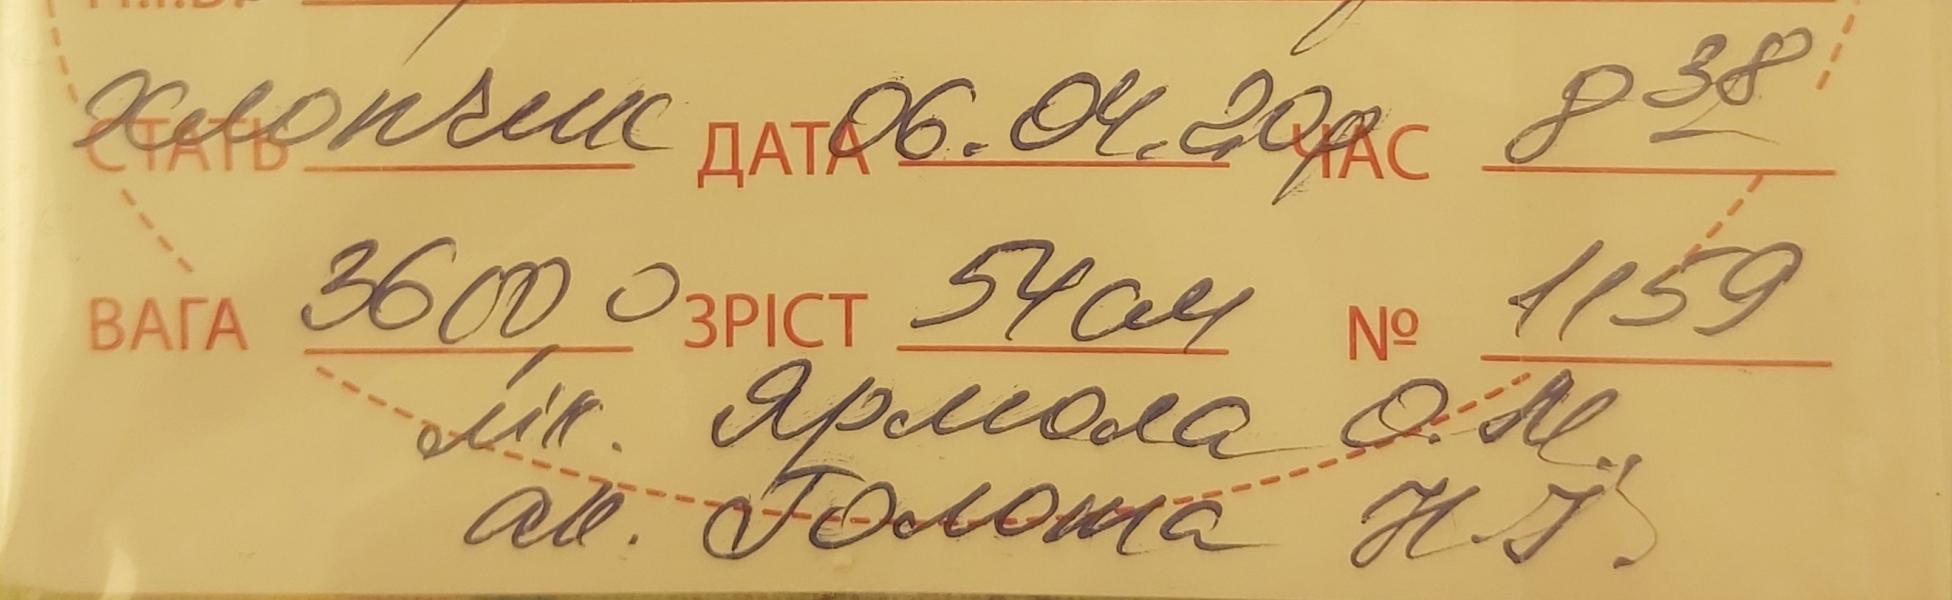 П.І.Б.
СТАТЬ хлопчик ДАТА 06.04.20р ЧАС 8 38
ВАГА 3600,0 ЗРІСТ 54 см № 1159
лік. Ярмола О.М.
ак. Голота Н.І.